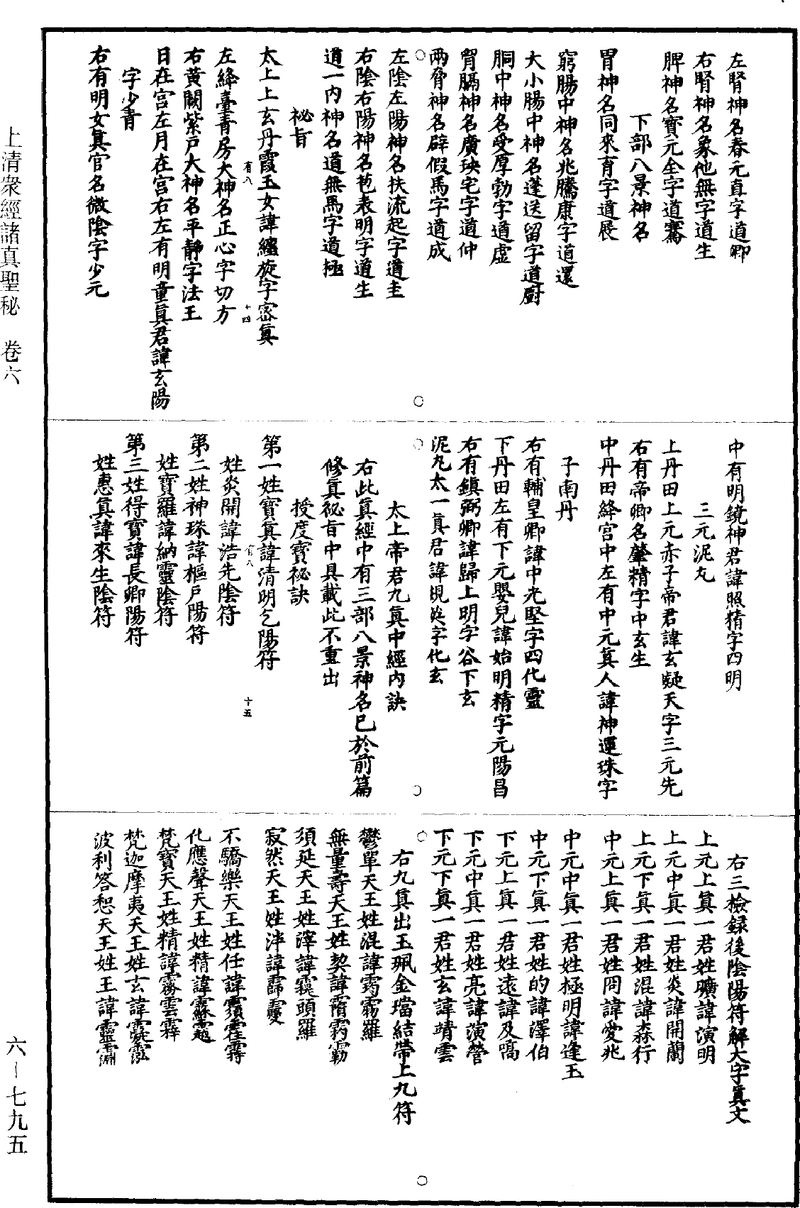 左腎神名春元直字道卿
右腎神名象他無字道生
脾神名寶元全字道騫
下部八景神名
胃神名同來育字道展
窮腸中神名兆騰康字道還
大小腸中神名蓬送留字道廚
胴中神名受厚勃字道虛
胷膈神名廣瑛宅字道仲
兩脅神名辟假馬字道成
左陰左陽神名扶流起字道圭
右陰右陽神名苞表明字道生
道一內神名道無馬字道極
祕旨
太上上玄丹霞玉女諱纏旋字密真
左絳臺青房大神名正心字切方
右黃闕紫戶大神名平靜字法王
日在宫左月在宫右左有明童真君諱玄陽
字少青
右有明女真官名微陰字少元
中有明鏡神君諱照精字四明
三元泥丸
上丹田上元赤子帝君諱玄凝天字三元先
右有帝卿名肇精字中玄生
中丹田絳宫中左有中元真人諱神運珠字
子南丹
右有輔皇卿諱中光堅字四化靈
下丹田左有下元嬰兒諱始明精字元陽昌
右有鎮弼卿諱歸上明字谷下玄
泥丸太一真君諱規英字化玄
太上帝君九真中經內訣
右此真經中有三部八景神名已於前篇
修真祕旨中具載此不重出
授度寶祕訣
第一姓寶真諱清明乞陽符
姓炎開諱浩先陰符
第二姓神珠諱樞戶陽符
姓寶羅諱納靈陰符
第三姓得寶諱長卿陽符
姓惠真諱來生陰符
右三檢録後陰陽符解大字真文
上元上真一君姓曠諱演明
上元中真一君姓炎諱開蘭
上元下真一君姓混諱森行
中元上真一君姓冏諱愛兆
中元中真一君姓極明諱逢玉
中元下真一君姓的諱澤伯
下元上真一君姓遠諱及喎
下元中真一君姓亮諱演營
下元下真一君姓玄諱靖雲
右九真出玉珮金璫結帶上九符
鬱單天王姓混諱霐霿羅
無量壽天王姓契諱
須延天王姓滓諱頭羅
寂然天王姓泮諱
不驕樂天王姓任諱
化應聲天王姓精諱
梵寶天王姓精諱雲
梵迦摩夷天王姓玄諱
波利答惒天王姓王諱
有八
十四
有八
十五
上清衆經諸真聖秘 卷六
六－七九五